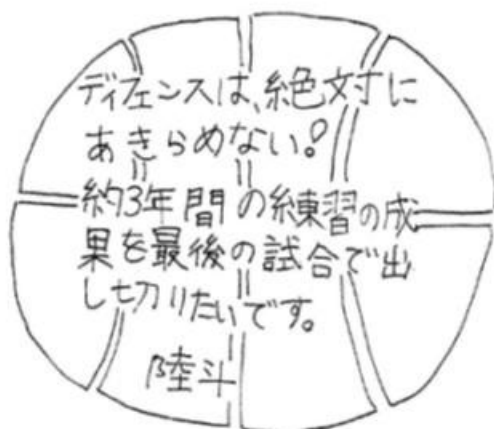 ディフェンスは、絶対に
あきらめない!
約3年間の練習の成
果を最後の試合で出
し切りたいです。
陸斗